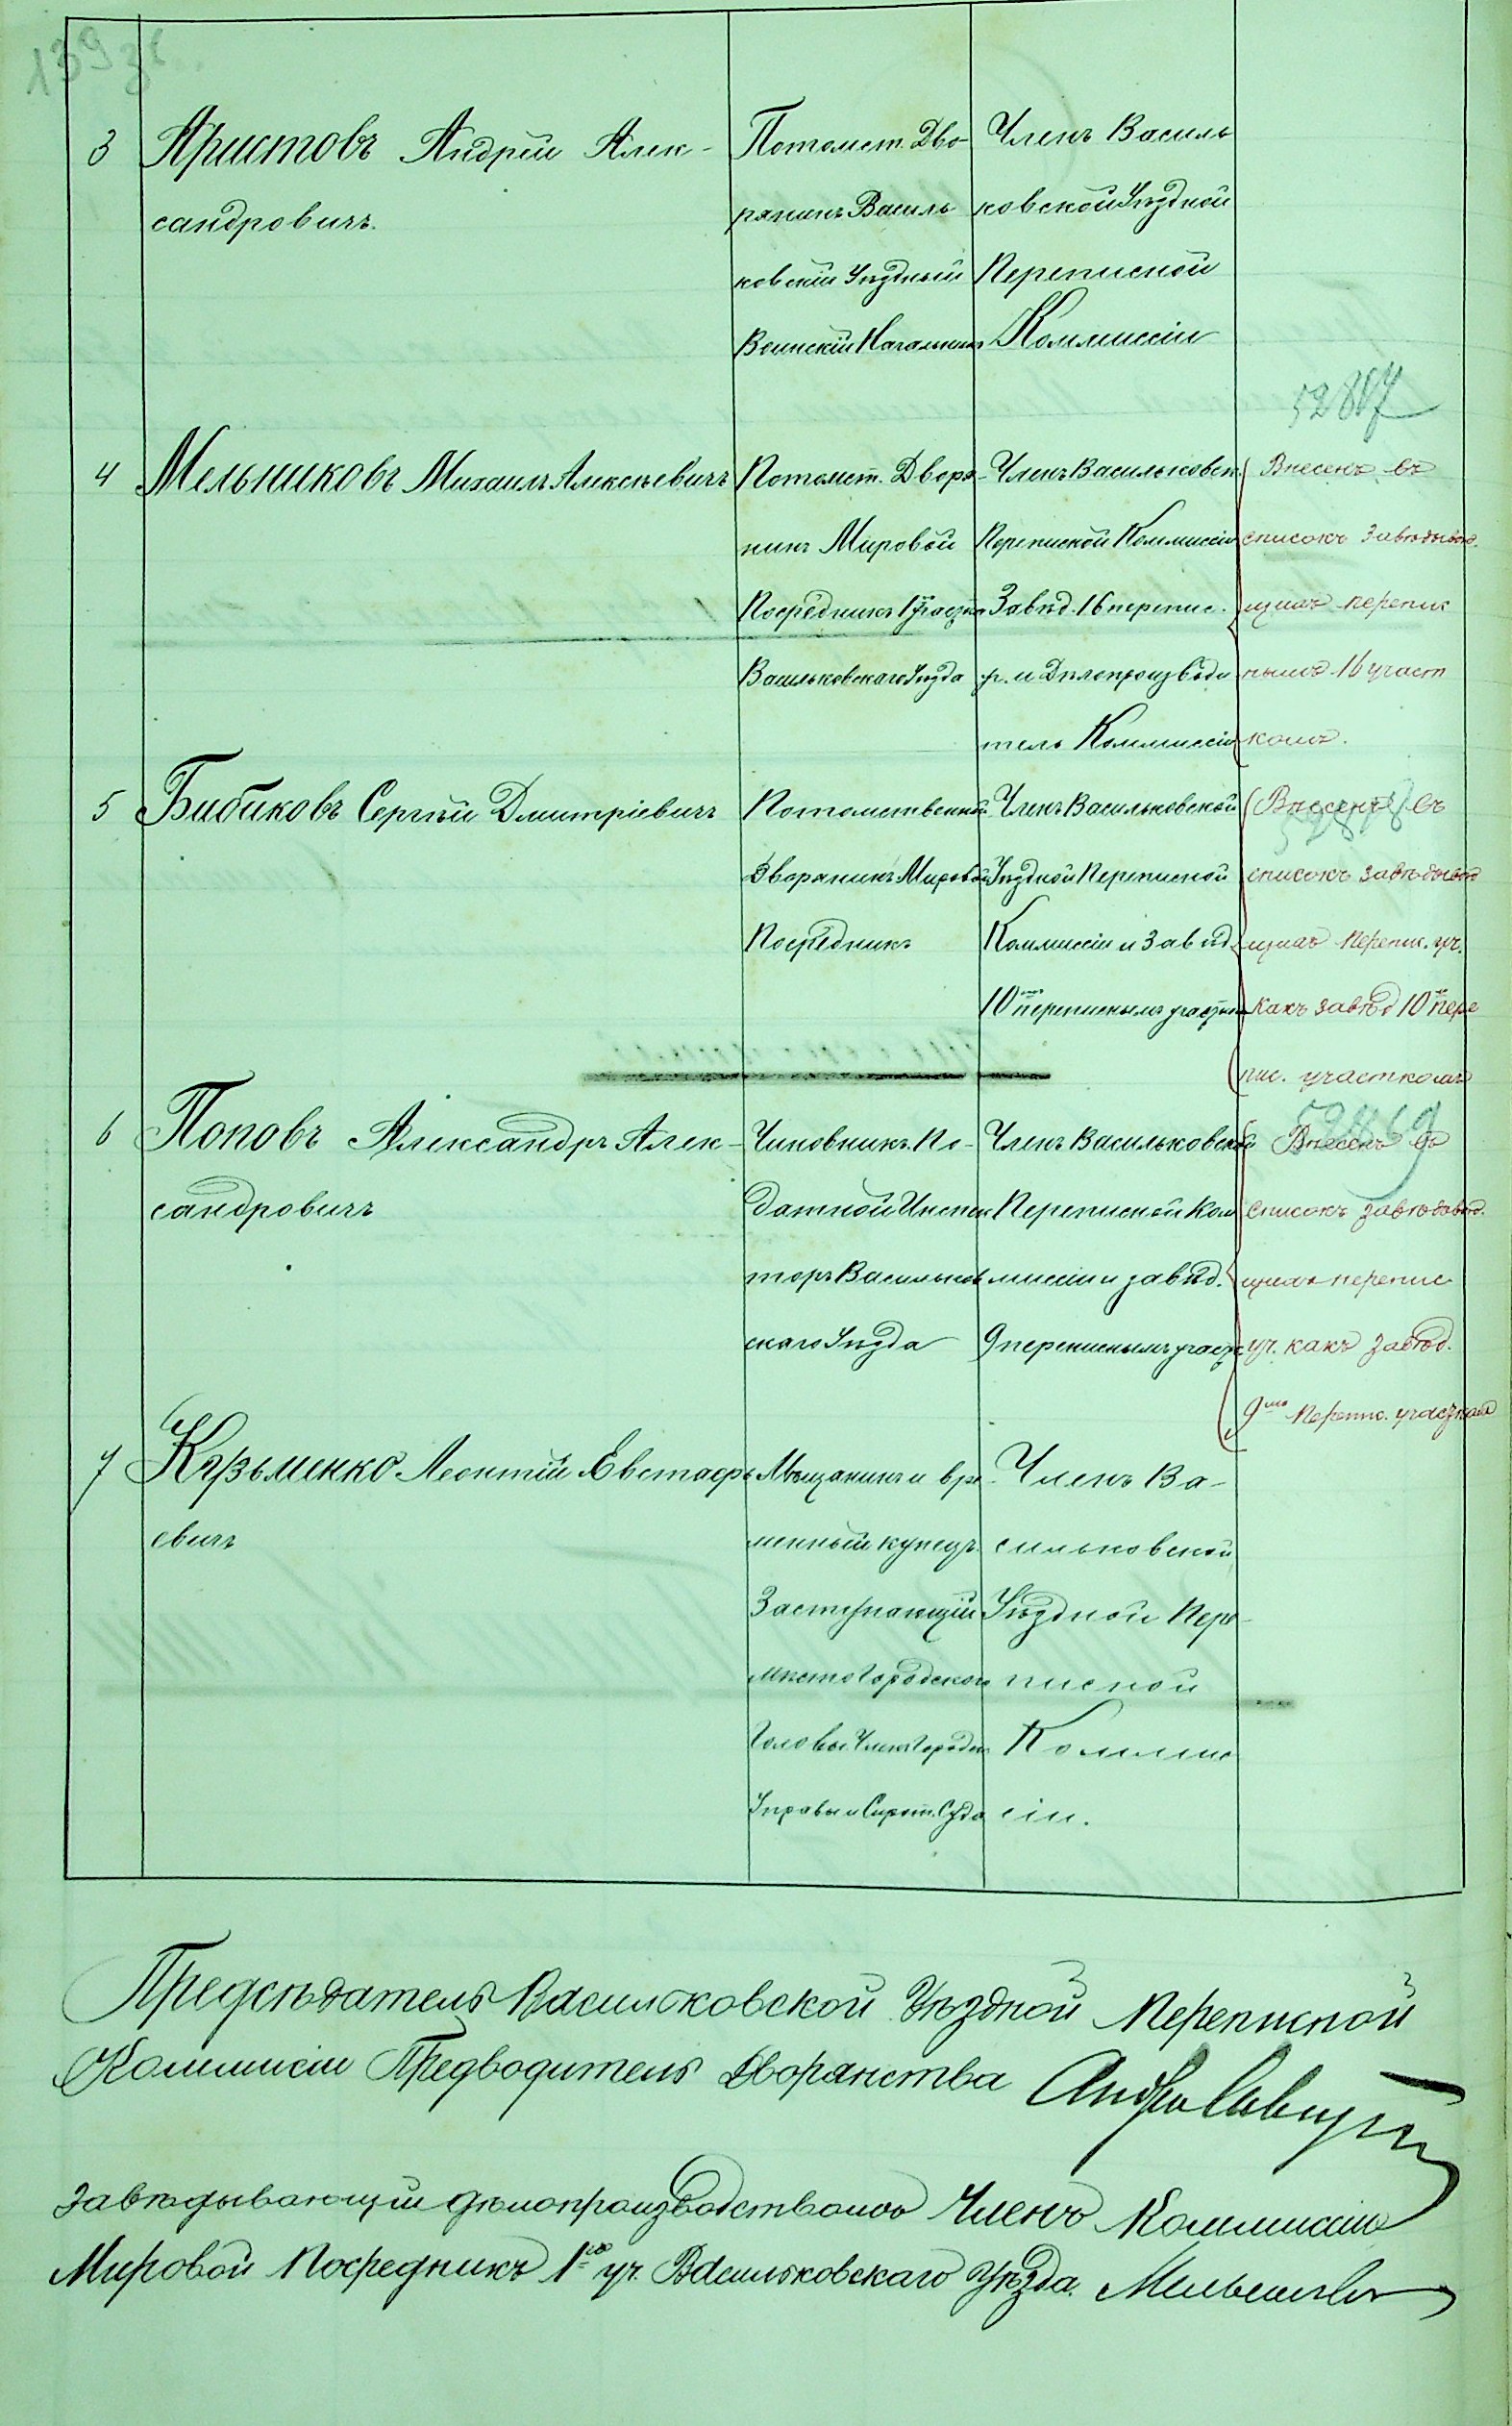 139 об.
3
Аристовъ Андрей Алек-
сандровичъ.
Потомст. Дво-
рянинъ Василь
ковскій Уѣздный
Воинскій Начальникъ
Членъ Василь
ковской Уѣздной
Переписной
Коммиссіи
4
Мельниковъ Михаилъ Алексѣевичъ
Потомст. Дворя-
нинъ Мировой
Посредникъ 1 участка
Васильковскаго Уѣзда
Членъ Васильковск.
Переписной Коммиссіи
Завѣд. 16 перепис.
у. и Дѣлопроизводи
тель Коммиссіи
Внесенъ въ
списокъ завѣдываю.
щихъ перепис
нымъ 16 участ
комъ.
5
Бибиковъ Сергѣй Дмитріевичъ
Потомственный
Дворянинъ Мировой
Посредникъ
Членъ Васильковской
Уѣздной Переписной
Коммиссіи и Завѣд.
10мъ переписнымъ участком
Внесенъ въ
списокъ завѣдываю
щихъ перепис. уч.
какъ завѣд 10мъ пере
пис. участкомъ
6
Поповъ Александръ Алек-
сандровичъ
Чиновникъ. По-
датной Инспек
торъ Васильков
скаго Уѣзда
Членъ Васильковской
Переписной Ком
миссіи и завѣд.
9 переписнымъ участк
Внесенъ въ
списокъ завѣдываю.
щихъ перепис
уч. какъ завѣд.
9мъ Перепис. участкомъ
7
Кузьменко Леонтій Евстафь
евичъ
Мѣщанинъ и вре
менный купецъ.
Заступающій
мѣсто Городского
Головы. Членъ Городск.
Управы и Сирот. Суда
Членъ Ва-
сильковской
Уѣздной Пере-
писной
Коммис
сіи.
Предсѣдатель Васильковской Уѣздной Переписной
Коммиссіи Предводитель Дворянства
Завѣдывающій дѣлопроизводствомъ Членъ Коммиссіи
Мировой Посредникъ 1го уч. Васильковскаго Уѣзда. Мельниковъ